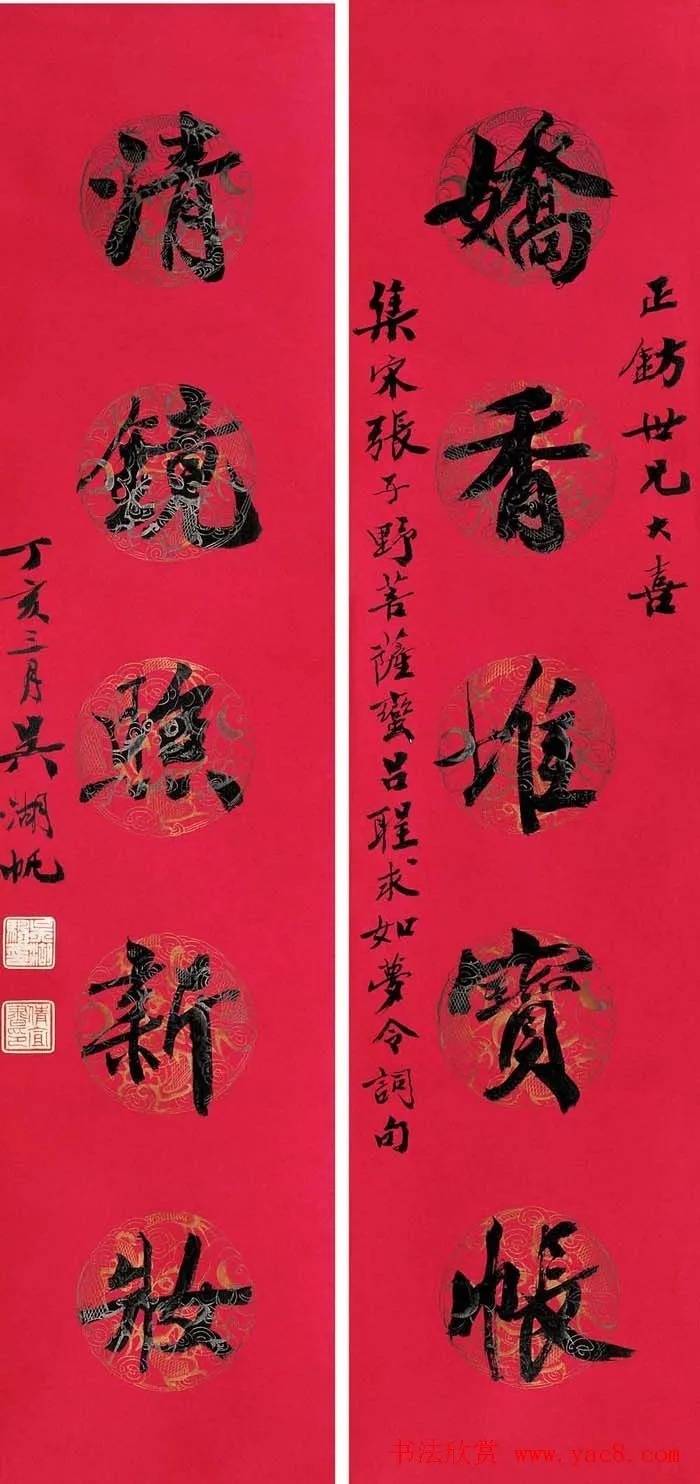 正鈁世兄大喜
嬌香堆寶帳
集宋張子野菩薩蠻呂聖求如夢令詞句
清鏡照新妝
丁亥三月吳湖帆
书法欣赏 www.yac8.com